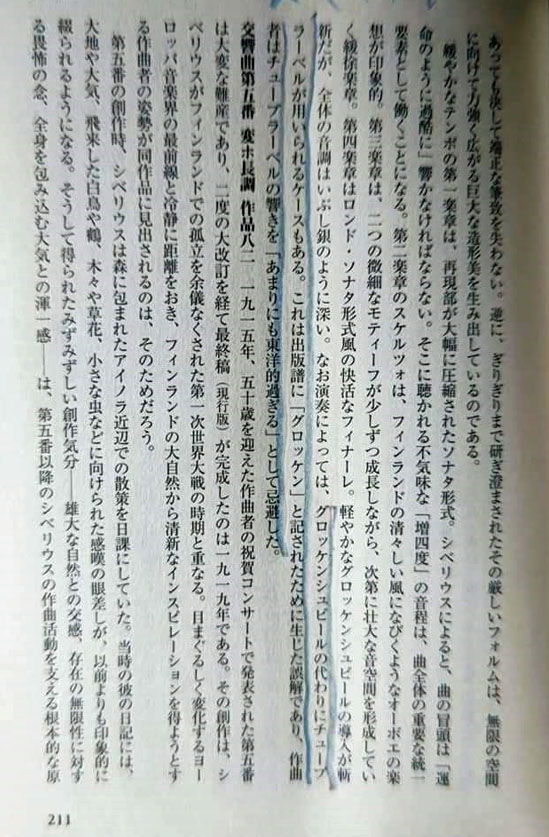 あっても決して端正な筆致を失わない。逆に、ぎりぎりまで研ぎ澄まされたその厳しいフォルムは、無限の空間
に向けて力強く広がる巨大な造形美を生み出しているのである。
緩やかなテンポの第一楽章は、再現部が大幅に圧縮されたソナタ形式。シベリウスによると、曲の冒頭は「運
命のように過酷に」響かなければならない。そこに聴かれる不気味な「増四度」の音程は、曲全体の重要な統一
要素として働くことになる。第二楽章のスケルツォは、フィンランドの清々しい風になびくようなオーボエの楽
想が印象的。第三楽章は、二つの微細なモティーフが少しずつ成長しながら、次第に壮大な音空間を形成してい
く緩徐楽章。第四楽章はロンド・ソナタ形式風の快活なフィナーレ。軽やかなグロッケンシュピールの導入が斬
新だが、全体の音調はいぶし銀のように深い。なお演奏によっては、グロッケンシュピールの代わりにチューブ
ラーベルが用いられるケースもある。これは出版譜に「グロッケン」と記されたために生じた誤解であり、作曲
者はチューブラーベルの響きを「あまりにも東洋的過ぎる」として忌避した。
交響曲第五番 変ホ長調 作品八二 一九一五年、五十歳を迎えた作曲者の祝賀コンサートで発表された第五番
は大変な難産であり、二度の大改訂を経て最終稿（現行版）が完成したのは一九一九年である。その創作は、シ
ベリウスがフィンランドでの孤立を余儀なくされた第一次世界大戦の時期と重なる。目まぐるしく変化するヨー
ロッパ音楽界の最前線と冷静に距離をおき、フィンランドの大自然から清新なインスピレーションを得ようとす
る作曲者の姿勢が同作品に見出されるのは、そのためだろう。
第五番の創作時、シベリウスは森に包まれたアイノラ近辺での散策を日課にしていた。当時の彼の日記には、
大地や大気、飛来した白鳥や鶴、木々や草花、小さな虫などに向けられた感嘆の眼差しが、以前よりも印象的に
綴られるようになる。そうして得られたみずみずしい創作気分――雄大な自然との交感、存在の無限性に対す
る畏怖の念、全身を包み込む大気との渾一感――は、第五番以降のシベリウスの作曲活動を支える根本的な原
211